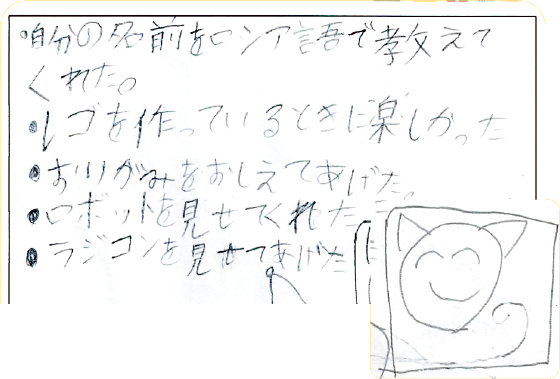 自分の名前をロシア語で教えて
くれた。
・レゴを作っているときに楽しかった
・おりがみをおしえてあげた。
・ロボットを見せてくれた
・ラジコンを見せてあげた